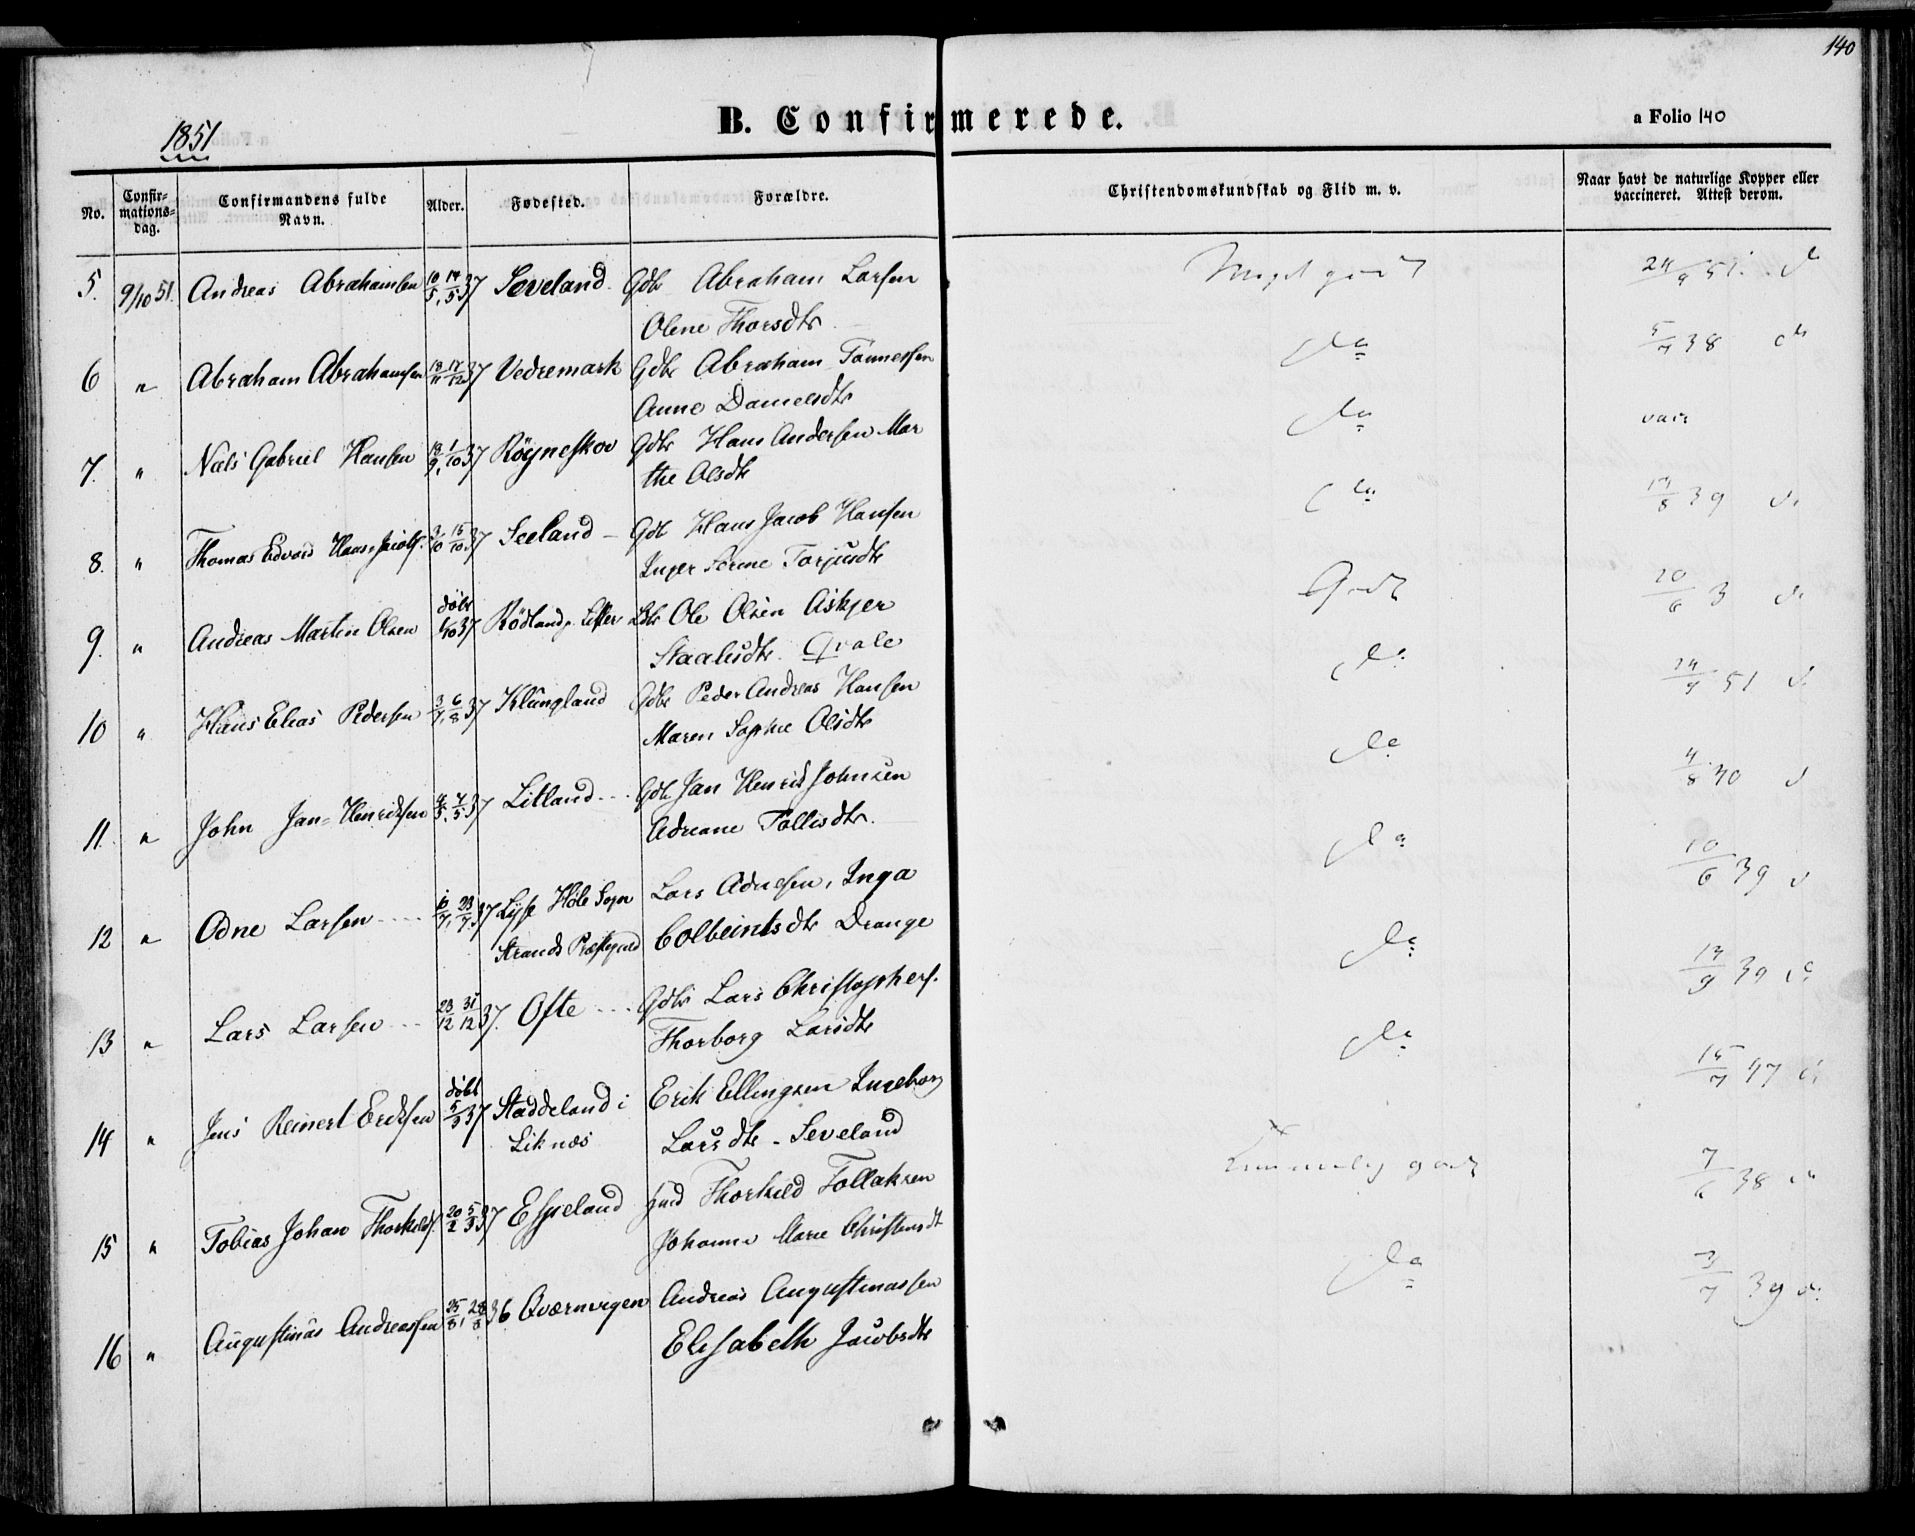 140
1851
B. Confirmerede.
a Folio 140
No.
Confir-
mations-
dag.
Confirmandens fulde
Navn.
Alder.
Fødested.
Forældre.
Christendomskundskab og Flid m. v.
Naar havt de naturlige Kopper eller
vaccineret. Attest derom.
5. 9/10 51. Andreas Abrahamsen 10/5, 14/5 37 Seveland Gdbr Abraham Larsen Meget godt 24/9 51. d
Olene Thorsdtr
6 " Abraham Abrahamsen 17/12 37 Vedremark Gdbr Abraham Tønnessen do 5/7 38 do
Anne Danielsdtr
7. " Niels Gabriel Hansen 1/10 37 Røyneskov Gdbr Hans Andersen Mar do vacc
the Olsdtr
8. " Thomas Edvard Hans Jacobs. 3/10 15/10 37 Seeland Gdb Hans Jacob Hansen do 17/8 39 d.
Inger Serine Torjusdtr
9. " Andreas Martin Olsen døbt 1/10 37 Rødland, Lister Ole Olsen Askjer Godt 20/6 3 d.
Staalesdtr. Qvale
10 " Hans Elias Pedersen 3/7, 6/8 37 Klungland Gdbr Peder Andreas Hansen do 24/9 51 d.
Maren Sophie Olsdtr
11. " John Jan=Henriksen 4/5, 7/5 37 Litland Gdb Jan Henrik Johnsen do 4/8 40 d
Adreane Tollisdtr.
12 " Odne Larsen 23/7 37 Lyse Høle Sogn Lars Adnesen, Inga do 10/6 39 d
Strands Præstegield Colbeintsdtr Drange
13 " Lars Larsen 23/12 31/12 37. Ofte Gdbr Lars Christophers. do 13/9 39 d.
Thorborg Larsdtr
14 " Jens Reinert Eriksen døbt 5/3 37 Staddeland i Erik Ellingsen Ingeborg do 15/7 47 d.
Liknæs Larsdtr - Seveland
15 " Tobias Johan Thorkilds. 20/2 5/3 37 Espeland Thorkild Tollaksen Temmelig godt 7/6 38 d
Johanne Marie Christensdt
16 " Augustinus Andreassen 25/8, 28/8 36 Qværnvigen Andreas Augustinussen do 3/7 39 d.
Elisabeth Jacobsdtr